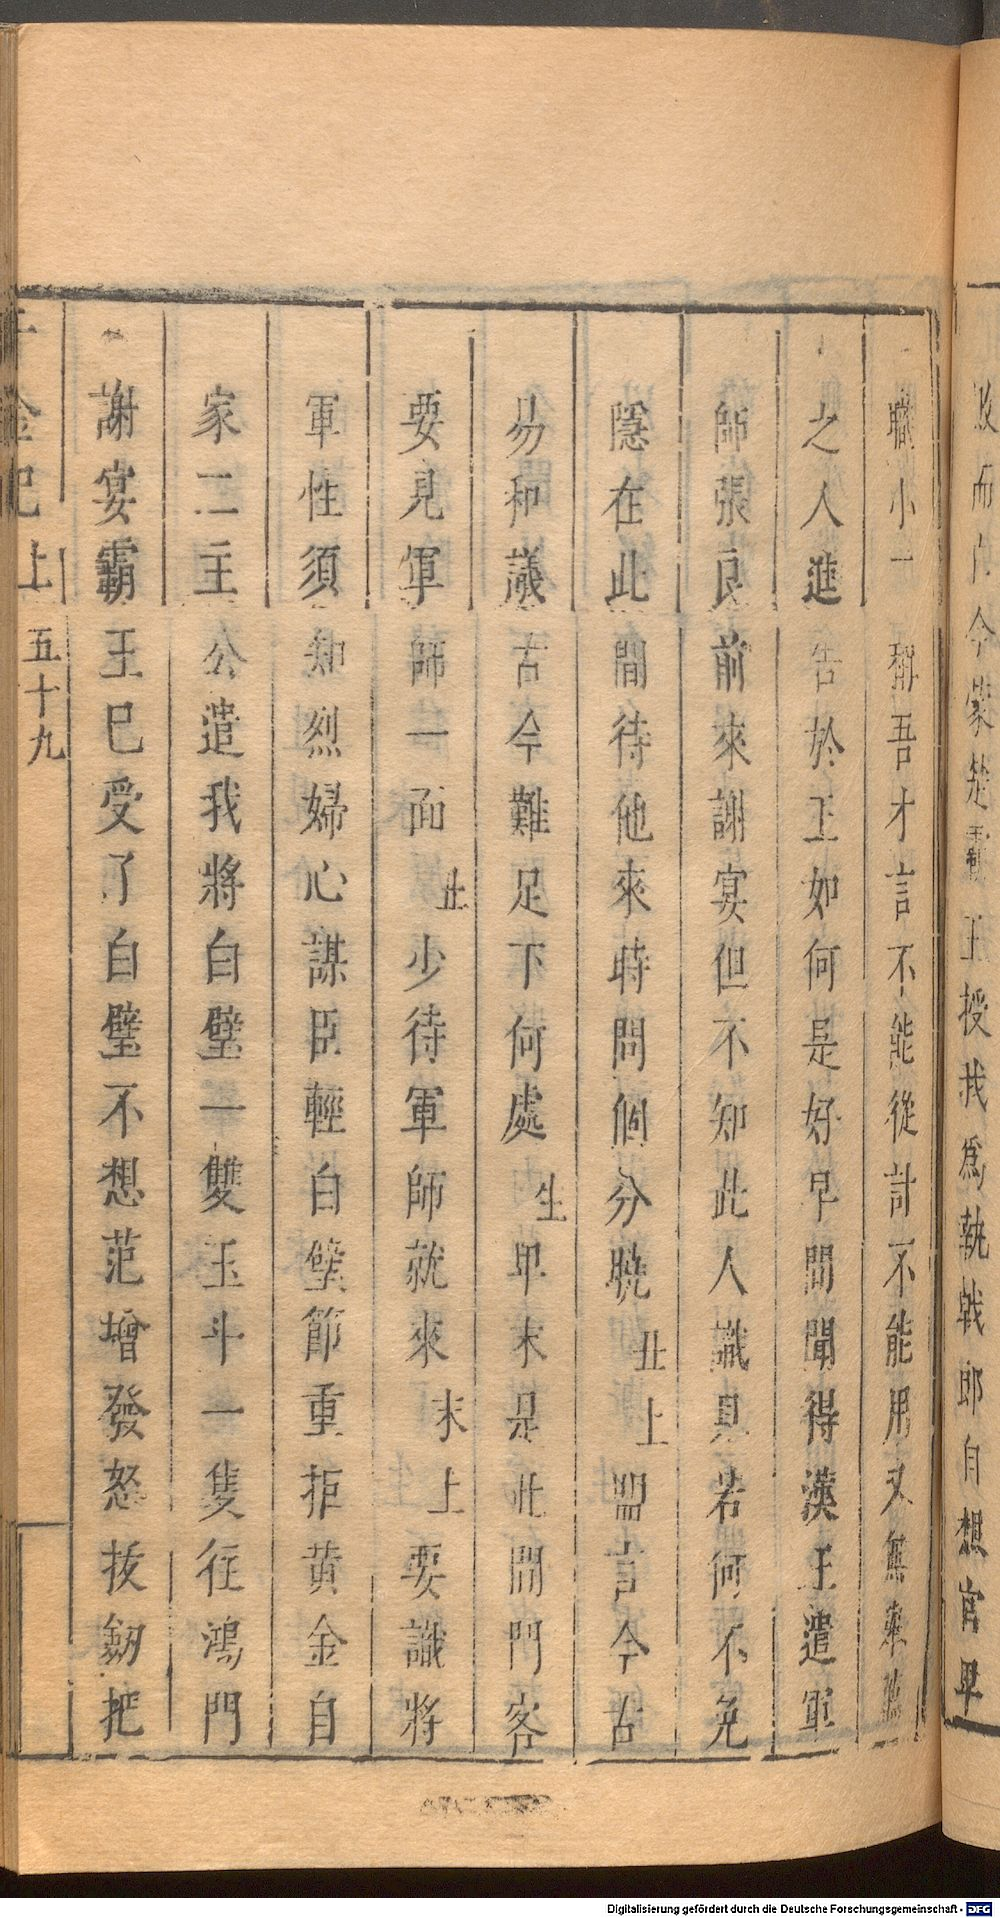 敗而亡今蒙楚霸王授我爲執戟郎自想官卑
職小一 稱吾才言不能從計不能用又無奉薦
之人進告於王如何是好早間聞得漢王遣軍
師張良前來謝宴但不知此人識見若何不免
隱在此間待他來時問個分曉丑上盟言今古
易和議古今難足下何處生卑末是此間門客
要見軍師一面丑少待軍師就來末上要識將
軍性須知烈婦心謀臣輕白璧節重拒黄金自
家二主公遣我將白璧一雙玉斗一隻往鴻門
謝宴霸王已受了白璧不想范增發怒拔劒把
千金記上 五十九
Digitalisierung gefördert durch die Deutsche Forschungsgemeinschaft - DFG